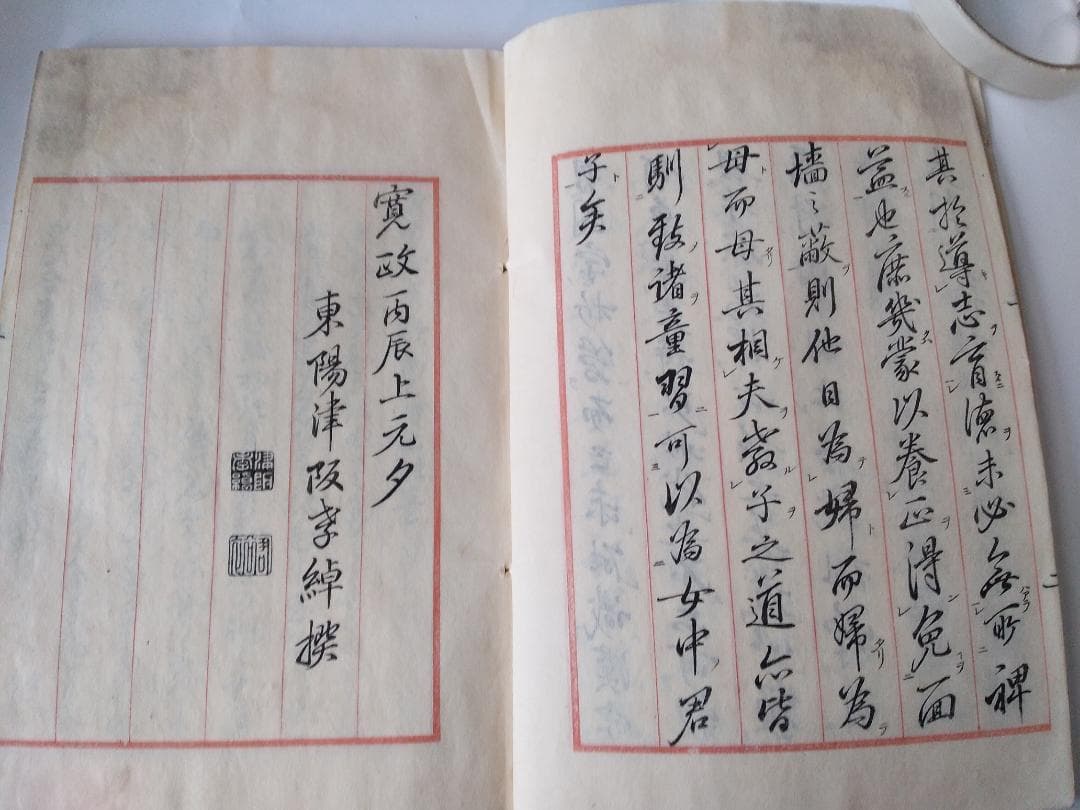 其於導志育德未必無所裨
益也庶幾蒙以養正得免面
墻之蔽則他日為婦而婦為
母而母其相夫教子之道亦皆
馴致諸童習可以為女中君
子矣
寛政丙辰上元夕
東陽津阪孝綽撰